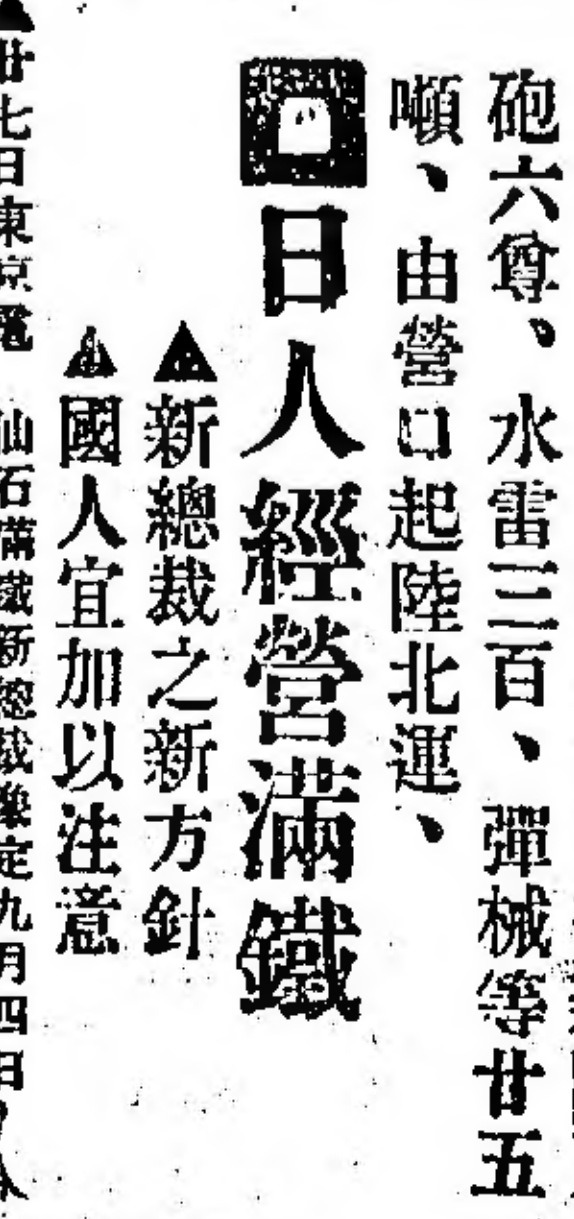 砲六尊、水雷三百、彈械等廿五
噸、由營口起陸北運、
日人經營滿鐵
▲新總裁之新方針
▲國人宜加以注意
▲廿七日東京電 仙石滿鐵新總裁豫定九月四日